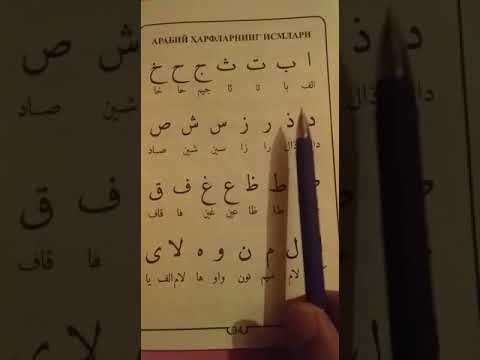 АРАБИЙ ҲАРФЛАРНИНГ ИСМЛАРИ
ا ب ت ث ج ح خ
الف با تا ثا جيم حا خا
د ذ ر ز س ش ص
دال ذال را زا سين شين صاد
ط ظ ع غ ف ق
طا ظا عين غين فا قاف
ل م ن و ه لا ى
لام ميم نون واو ها لام الف يا